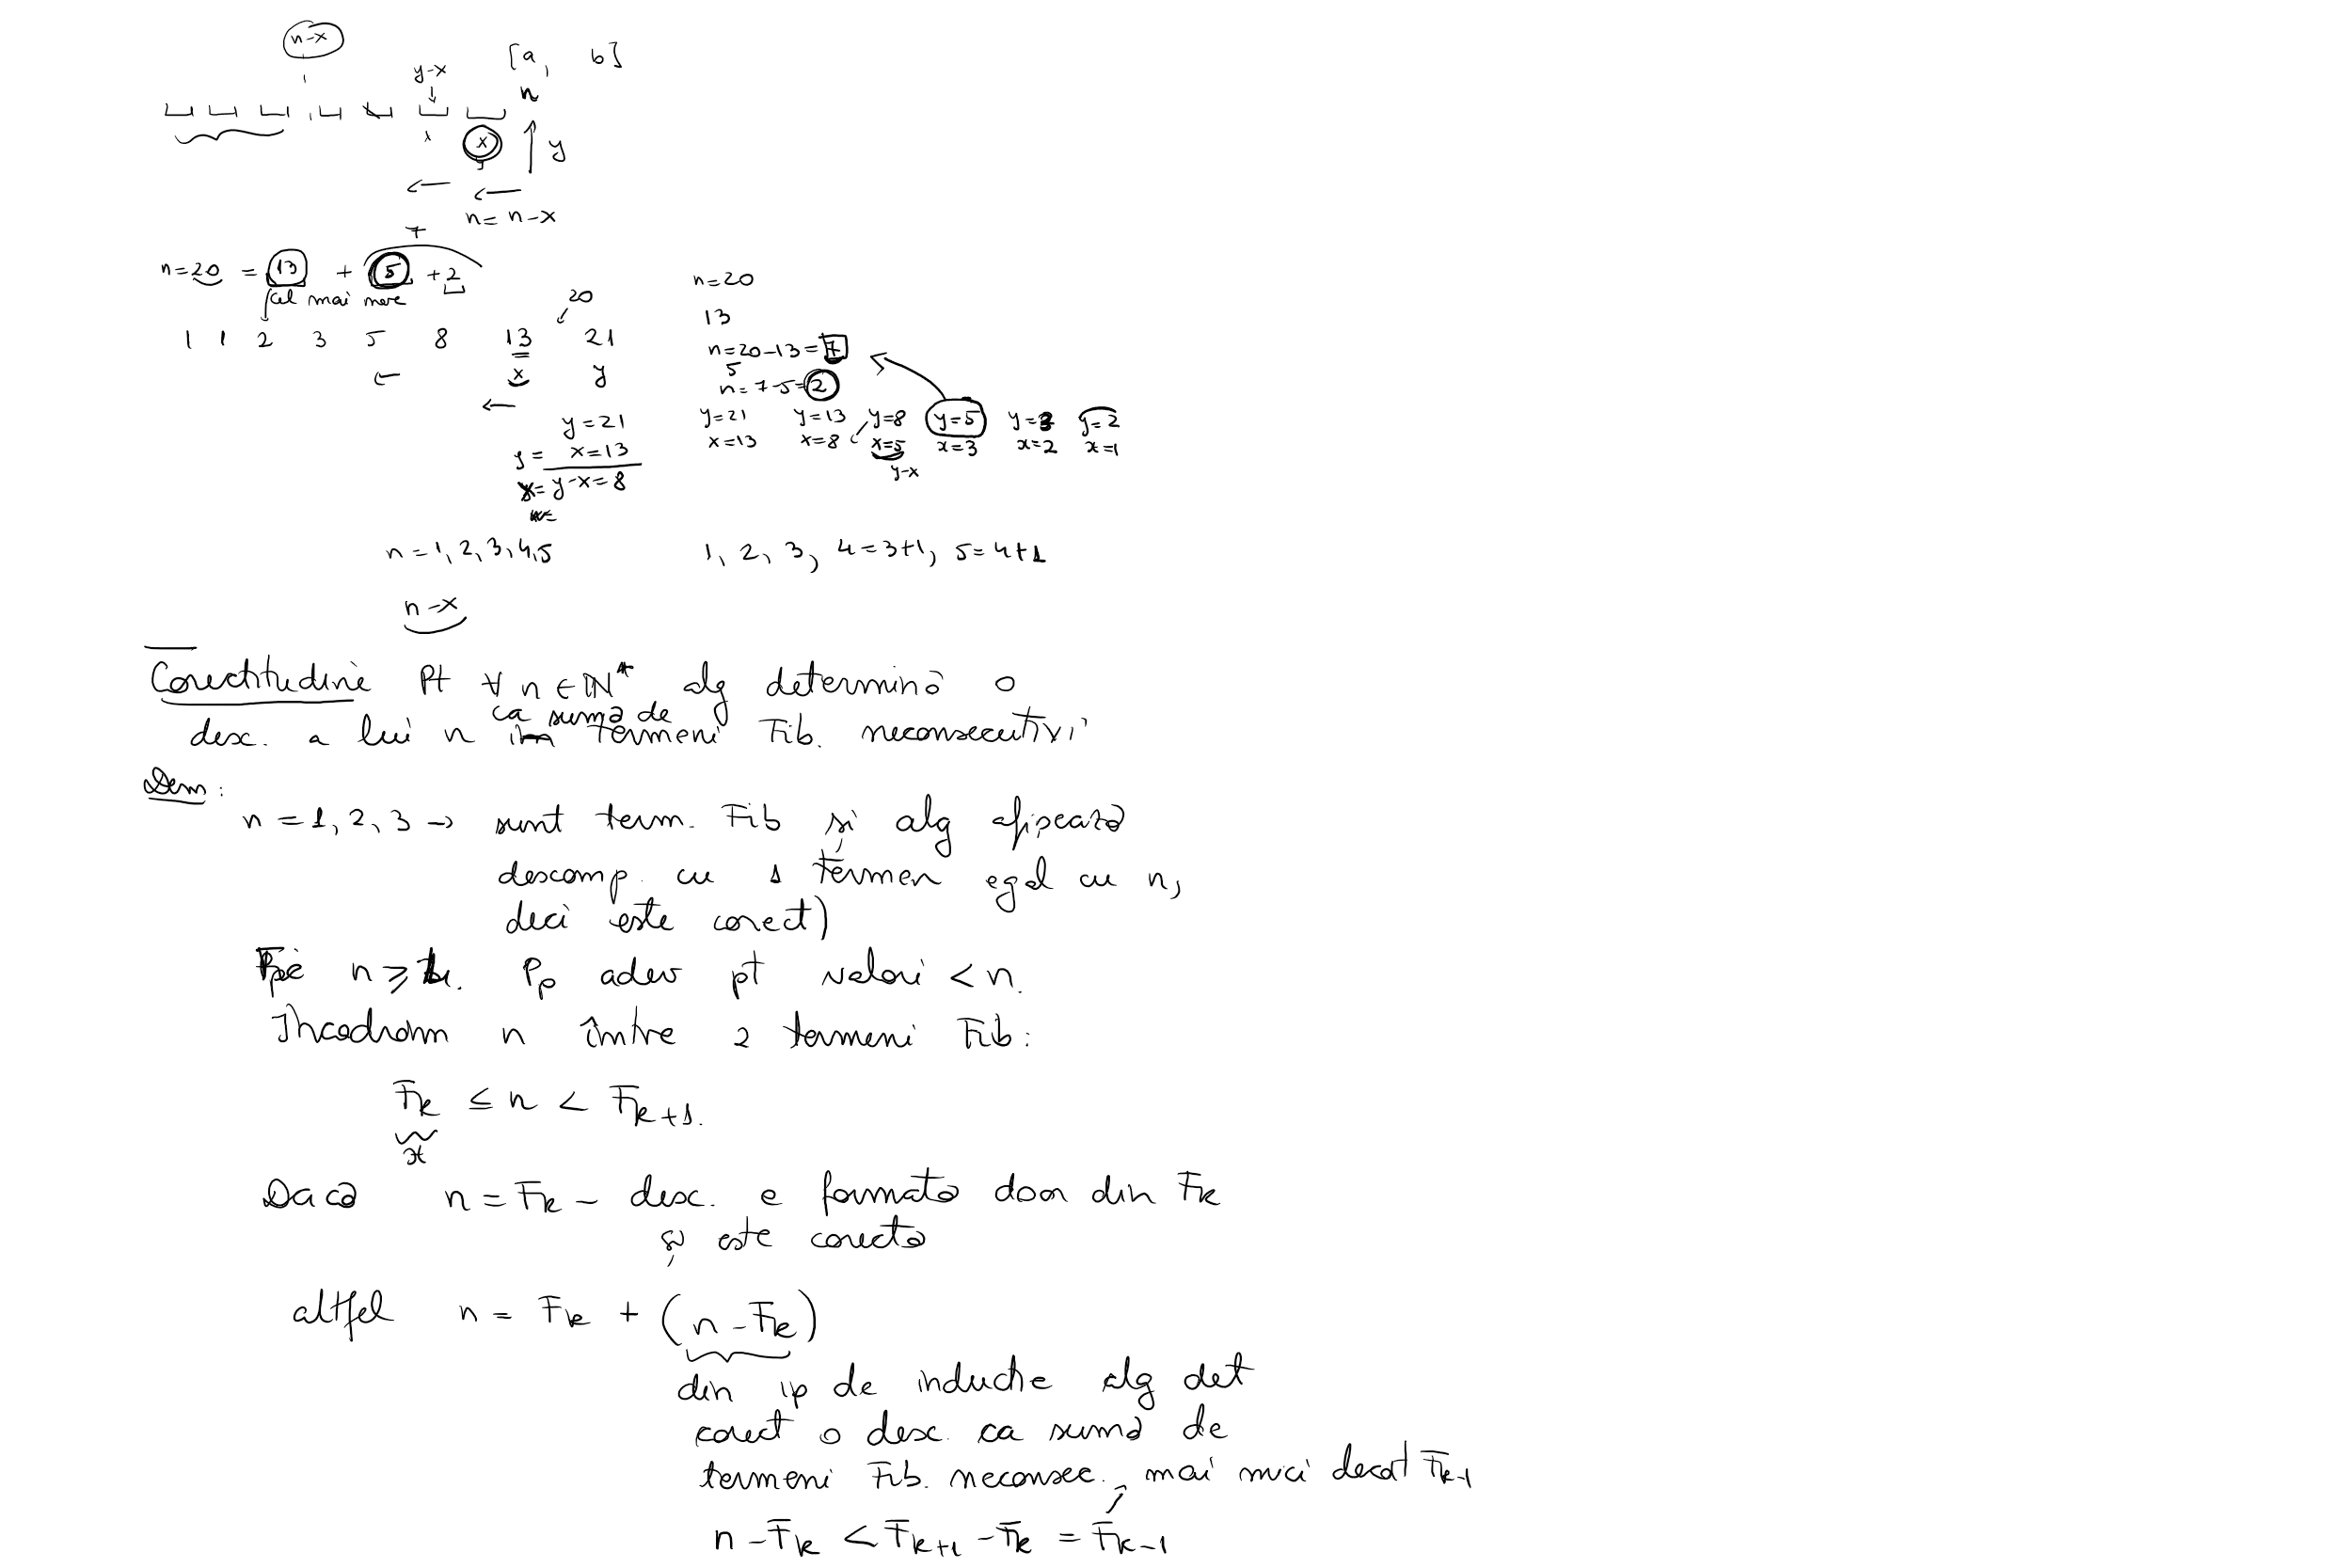 n-x
[a, b]
y-x
n
x
x y
n = n-x
7
n=20 = 13 + 5 +2
cel mai mare
20
1 1 2 3 5 8 13 21
x y
y=21
x=13
y=
x= y-x=8
n=20
13
n=20-13=7
5
n=7-5=2
y=21 y=13 y=8 y=5 y=3 y=2
x=13 x=8 x=5 x=3 x=2 x=1
y-x
n=1,2,3,4,5 1, 2, 3, 4=3+1, 5=4+1
n-x
Corectitudine Pt ∀ n ∈ ℕ* alg determină o
ca sumă de
desc. a lui n termeni Fib. neconsecutivi
Dem:
n = 1, 2, 3 → sunt term. Fib și alg afișează
descomp. cu 1 termen egal cu n,
deci este corect)
Fie n ≥ 4. Pp adev pt valori < n.
Încadrăm n între 2 termeni Fib:
Fk ≤ n < Fk+1.
x
Dacă n = Fk - desc. e formată doar din Fk
și este corectă
altfel n = Fk + (n - Fk)
din ip de inducție alg det
corect o desc. ca sumă de
termeni Fib. neconsec., mai mici decat Fk-1
n - Fk < Fk+1 - Fk = Fk-1